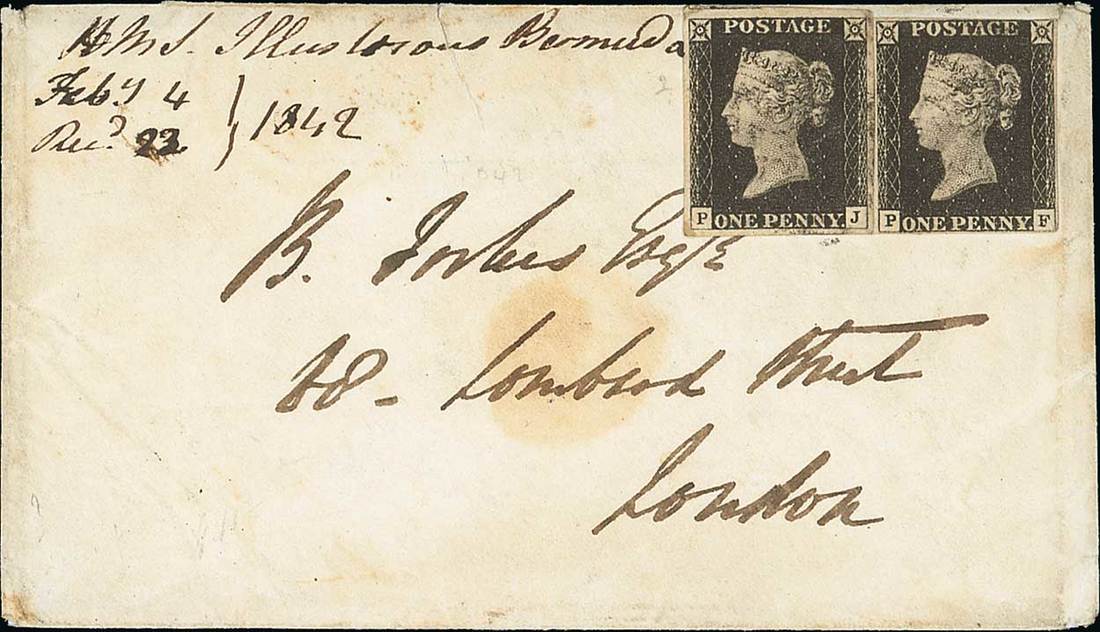 HMS. Illustrious Bermuda
Feby 4
Recd. 22
} 1842
POSTAGE
P ONE PENNY. J
POSTAGE
P ONE PENNY. F
B. Forbes Esqre
68 - Lombard Street
London